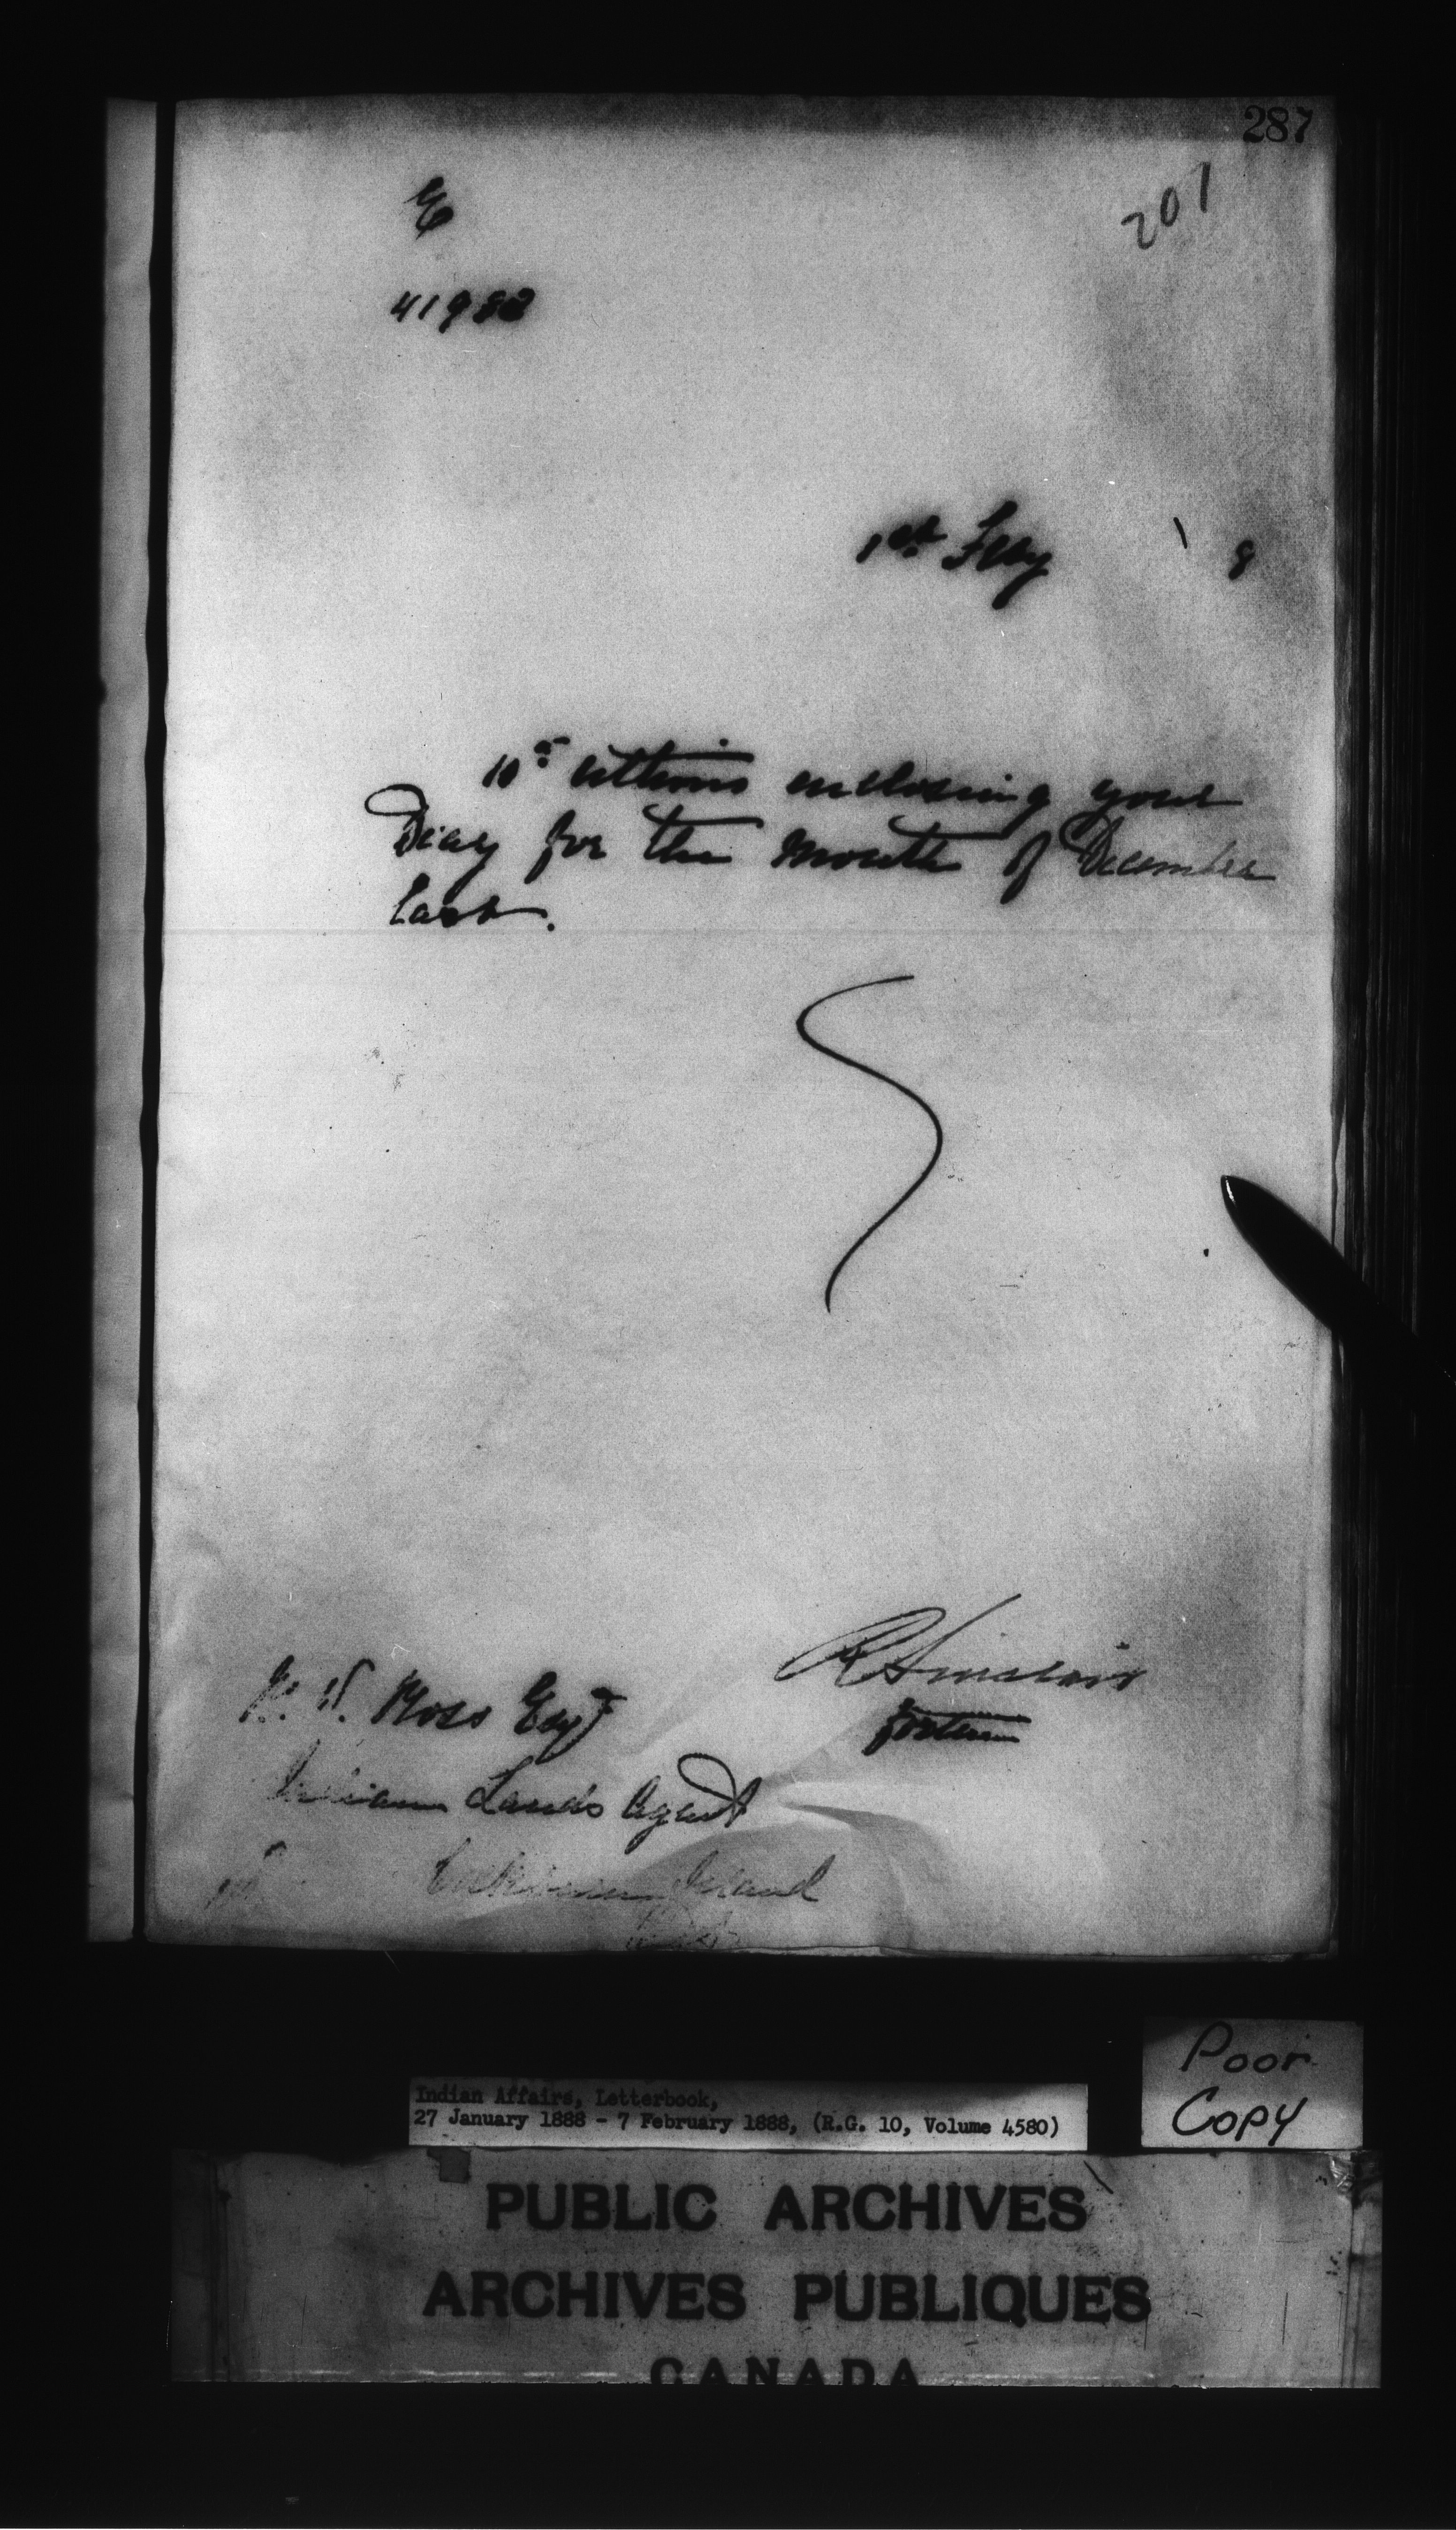 287
207
41982
1st Feby 8
10th ultimo enclosing your
Diary for the month of December
last.
R Sinclair
for
Ross Esqr
Indian Lands Agent
Cockburn Island
Indian Affairs, Letterbook,
27 January 1888 - 7 February 1888, (R.G. 10, Volume 4580)
Poor
Copy
PUBLIC ARCHIVES
ARCHIVES PUBLIQUES
CANADA